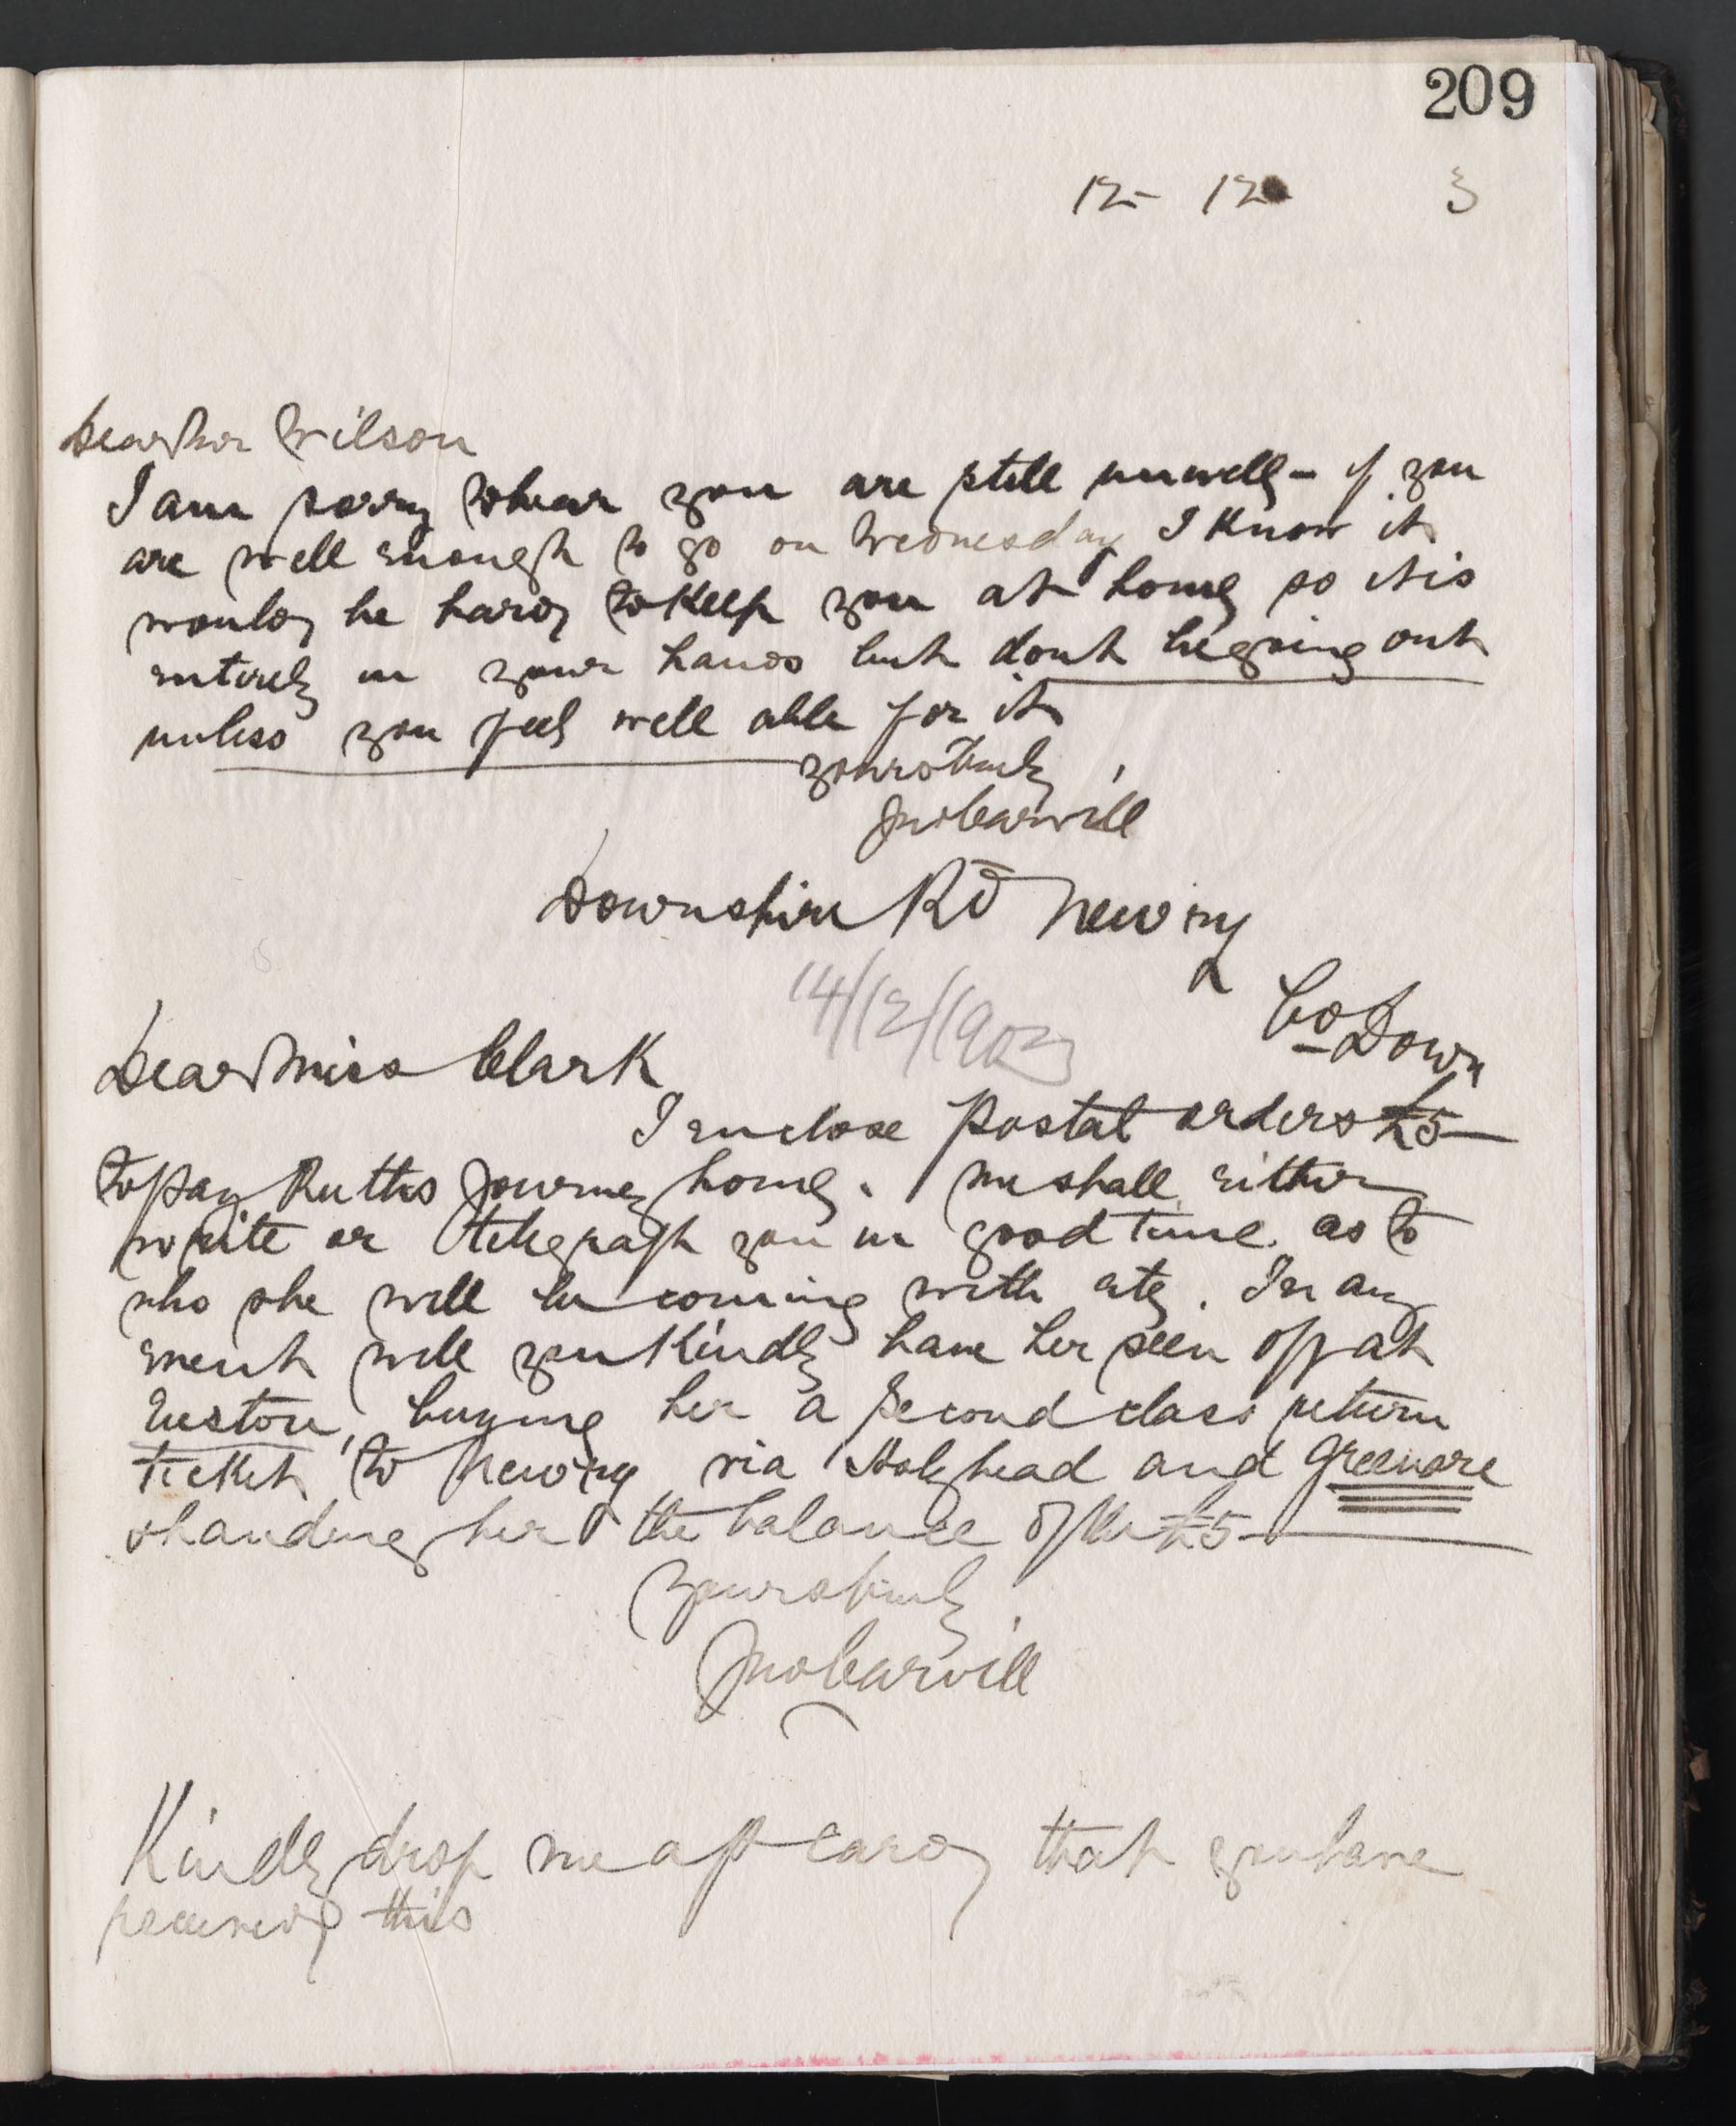 209
12 - 12 3
Dear Mr Wilson
I am sorry to hear you are still unwell - if you
are well enough to go on Wednesday I know it
would be hard to keep you at home so it is
entirely in your hands but dont be going out
unless you feel well able for it
yours truly
Jno Carvill
Downshire Rd Newry
Co Down
14/12/1903
Dear Miss Clark
I enclose postal orders £5-
to pay Ruths journey home. We shall either
write or telegraph you in good time as to
who she will be coming with etc. In any
event will you kindly have her seen off at
Euston, buying her a second class return
ticket to Newry via Holyhead and Greenore
& handing her the balance of the £5-
yours truly
Jno Carvill
Kindly drop me a pt card that you have
received this